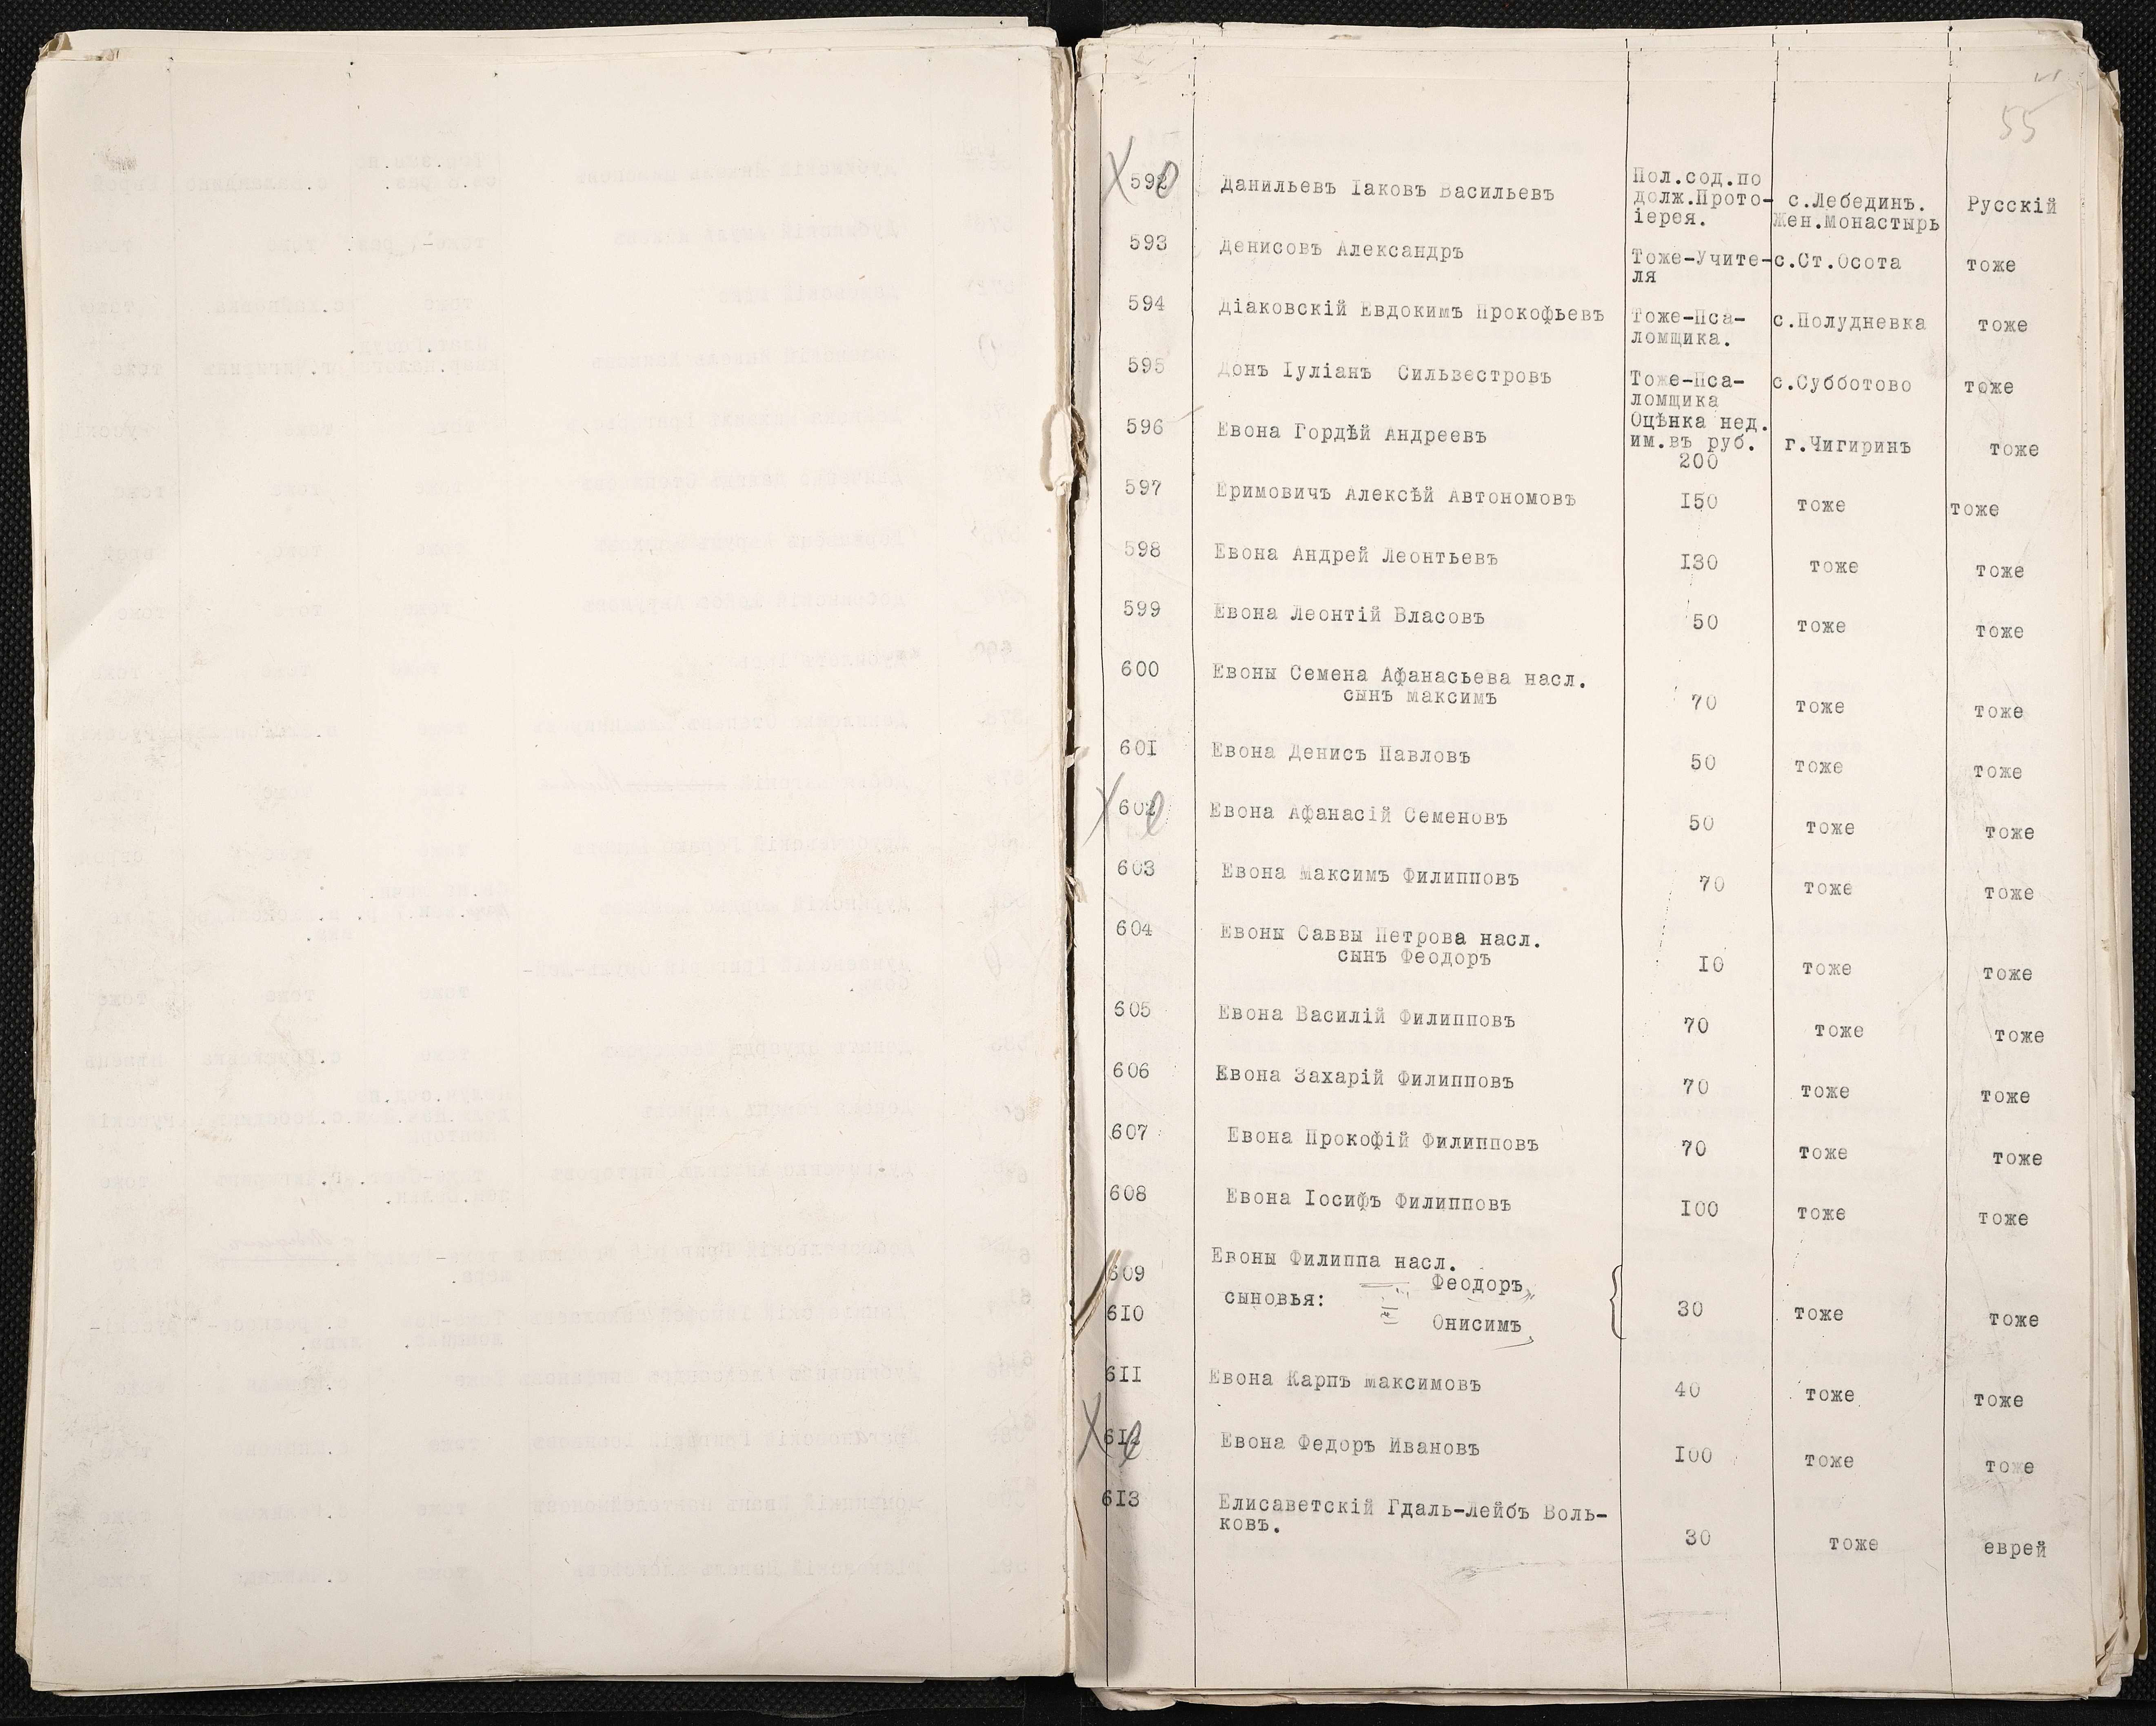 55
592 Данильевъ Іаковъ Васильевъ Пол.сод.по долж.Прото-іерея. с.Лебединъ. Жен.Монастырь Русскій
593 Денисовъ Александръ Тоже-Учите-ля с.Ст.Осота тоже
594 Діаковскій Евдокимъ Прокофьевъ Тоже-Пса-ломщика. с.Полудневка тоже
595 Донъ Іуліанъ Сильвестровъ Тоже-Пса-ломщика с.Субботово тоже
596 Евона Гордѣй Андреевъ Оцѣнка нед. им.въ руб. 200 г.Чигиринъ тоже
597 Еримовичъ Алексѣй Автономовъ 150 тоже тоже
598 Евона Андрей Леонтьевъ 130 тоже тоже
599 Евона Леонтій Власовъ 50 тоже тоже
600 Евоны Семена Афанасьева насл.
сынъ Максимъ 70 тоже тоже
601 Евона Денисъ Павловъ 50 тоже тоже
602 Евона Афанасій Семеновъ 50 тоже тоже
603 Евона Максимъ Филипповъ 70 тоже тоже
604 Евоны Саввы Петрова насл.
сынъ Феодоръ 10 тоже тоже
605 Евона Василій Филипповъ 70 тоже тоже
606 Евона Захарій Филипповъ 70 тоже тоже
607 Евона Прокофій Филипповъ 70 тоже тоже
608 Евона Іосифъ Филипповъ 100 тоже тоже
Евоны Филиппа насл.
609 Феодоръ
сыновья:
610 Онисимъ 30 тоже тоже
611 Евона Карпъ Максимовъ 40 тоже тоже
612 Евона Федоръ Ивановъ 100 тоже тоже
613 Елисаветскій Гдаль-Лейбъ Воль-
ковъ. 30 тоже еврей